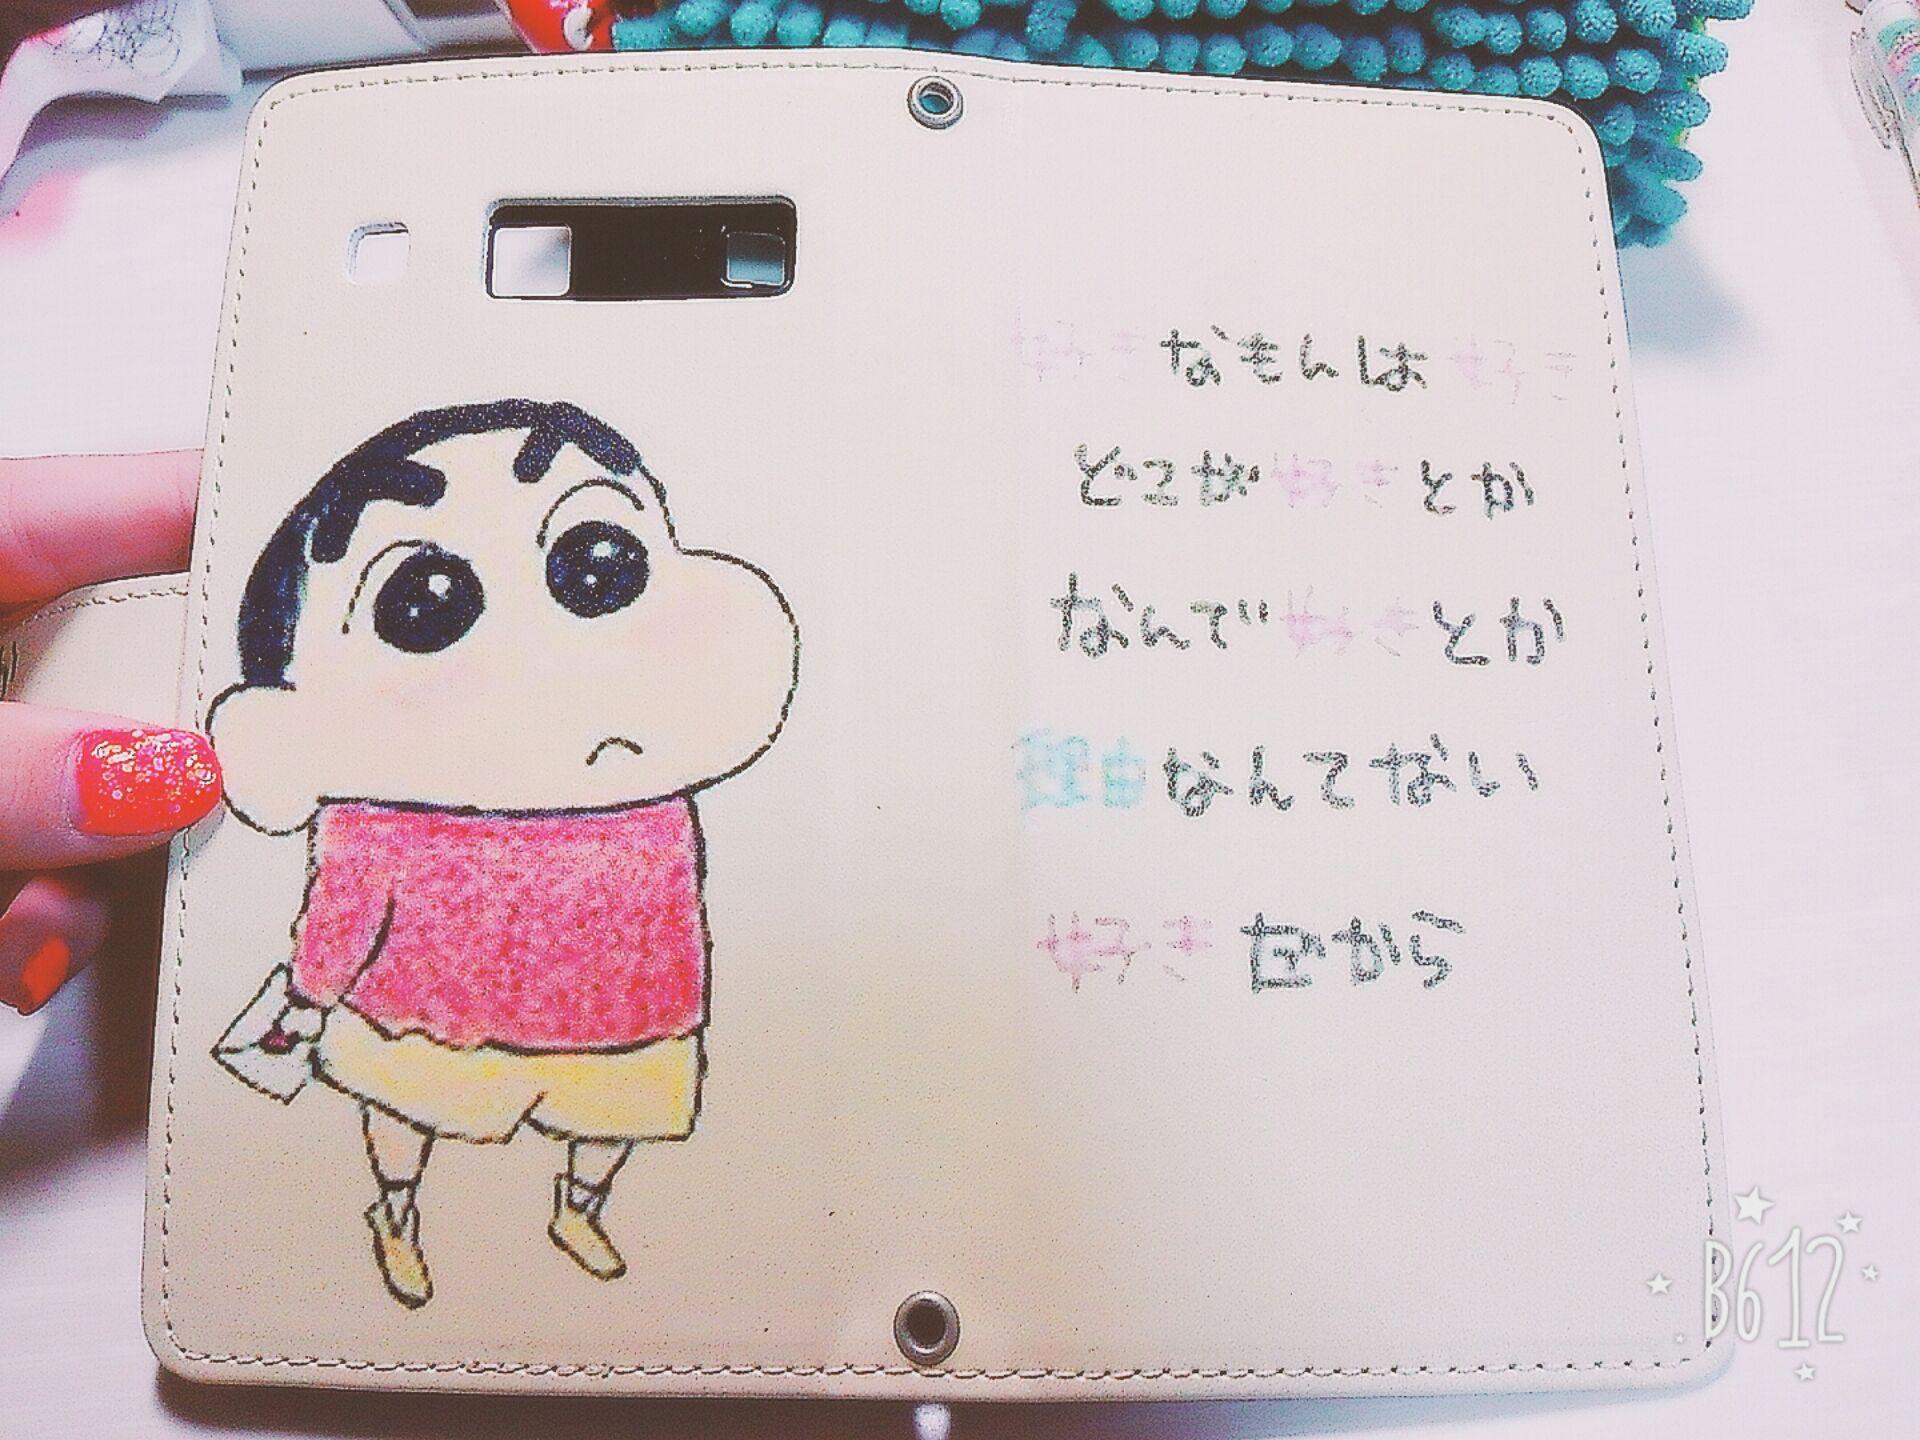 好きなもんは好き
どこが好きとか
なんで好きとか
理由なんてない
好きだから
B612